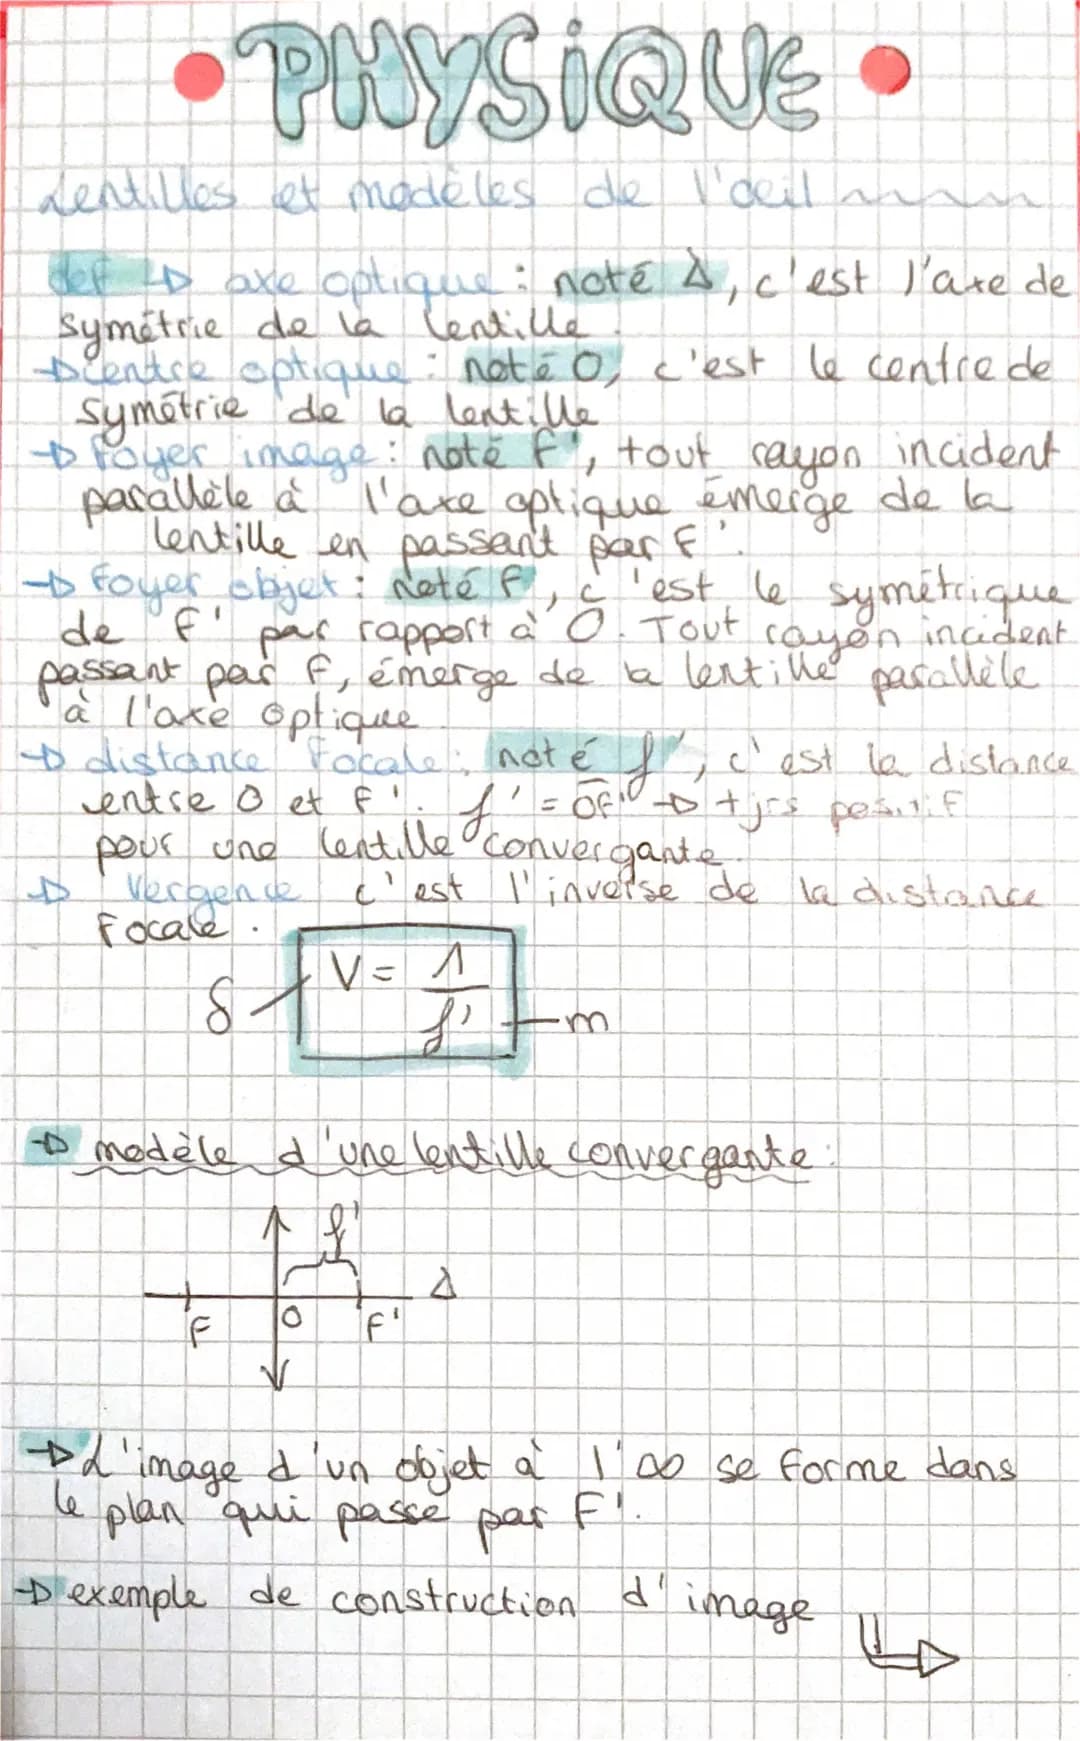 • PHYSIQUE •
Lentilles et modèles de l'œil
def → axe optique : noté Δ, c'est l'axe de
symétrie de la lentille.
→ centre optique : noté O, c'est le centre de
symétrie de la lentille
→ Foyer image : noté F', tout rayon incident
parallèle à l'axe optique émerge de la
lentille en passant par F'.
→ Foyer objet : noté F, c'est le symétrique
de F' par rapport à O. Tout rayon incident
passant par F, émerge de la lentille parallèle
à l'axe optique
→ distance Focale : noté f', c'est la distance
entre O et F'. f' = OF' → + tjrs positif
pour une lentille convergante.
→ Vergence c'est l'inverse de la distance
Focale.
δ V = 1/f' m
→ modèle d'une lentille convergante :
f'
Δ
F O F'
→ L'image d'un objet à l'∞ se forme dans
le plan qui passe par F'.
→ exemple de construction d'image